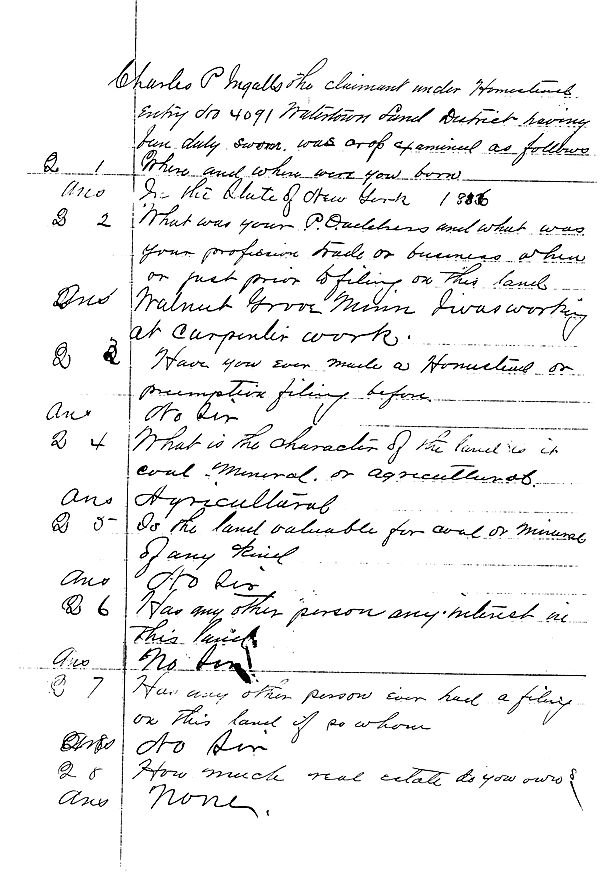 Charles P Ingalls the claimant under Homestead
Entry No 4091 Watertown Land District having
been duly sworn was crop examined as follows
Q 1 Where and when were you born
Ans In the State of New York 1836
Q 2 What was your P.O address and what was
your profession trade or business when
or just prior to filing on this land
Ans Walnut Grove Minn I was working
at carpenter work.
Q 3 Have you ever made a Homestead or
preemption filing before
Ans No Sir
Q 4 What is the character of the land is it
coal. mineral. or agricultural.
Ans Agricultural
Q 5 Is the land valuable for coal or mineral
of any kind
Ans No Sir
Q 6 Has any other person any interest in
this land
Ans No Sir
Q 7 Has any other person ever had a filing
on this land if so whom
Ans No Sir
Q 8 How much real estate do you own?
Ans None.